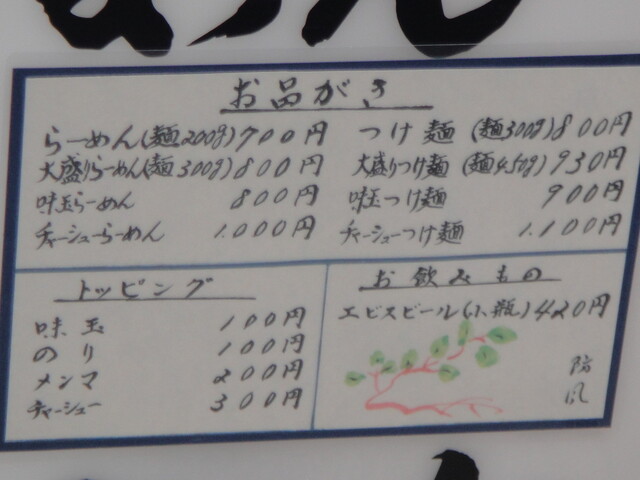 お品がき
らーめん(麺200g)700円
大盛りらーめん(麺300g)800円
味玉らーめん 800円
チャーシューらーめん 1.000円
つけ麺 (麺300g)800円
大盛りつけ麺 (麺450g)930円
味玉つけ麺 900円
チャーシューつけ麺 1.100円
トッピング
味玉 100円
のり 100円
メンマ 200円
チャーシュー 300円
お飲みもの
エビスビール(小瓶)420円
防風